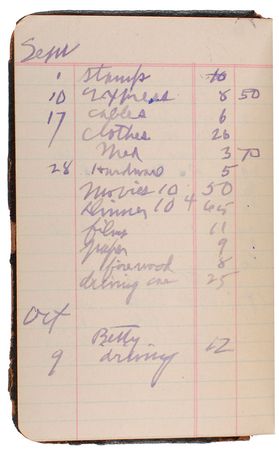 Sept
1 stamps 10
10 express 8 50
17 cables 6
clothes 26
Med 3 70
28 hardward 5
Movies 10 50
dinner 10 4 65
film 11
paper 9
firewood 8
driving car 25
Oct
Betty
9 driving 12